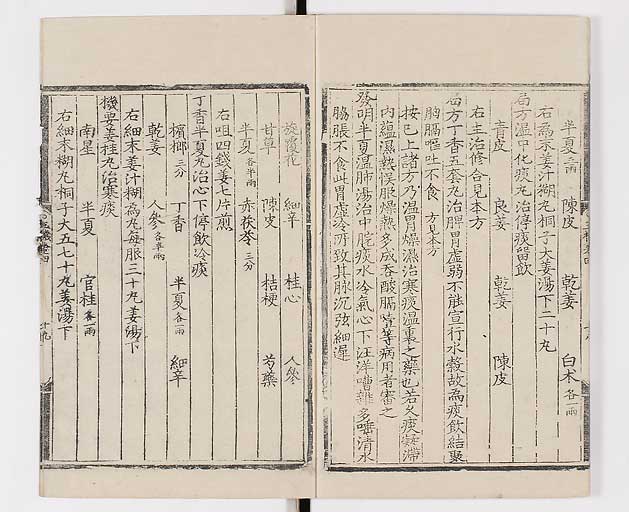 半夏二两 陳皮 乾姜 白术各一兩
右爲末姜汁糊丸桐子大姜湯下二十丸
局方溫中化痰丸治停痰留飮
青皮 良姜 乾姜 陳皮
右主治修合見本方
局方丁香五套丸治脾胃虛弱不能宣行水榖故爲痰飮結聚
胸膈嘔吐不食 方見本方
按已上諸方乃溫胃燥濕治寒痰溫裏之藥也若火痰凝滯
内蘊濕熱悞服燥熱多成呑酸膈噎等病用者審之
發明半夏溫肺湯治中脘痰水冷氣心下汪洋嘈雜多唾清水
脇脹不食此胃虛冷所致其脉沉弦細遲
旋覆花 細辛 桂心 人參
甘草 陳皮 桔梗 芍藥
半夏各半兩 赤茯苓三分
右㕮咀四錢姜七片煎
丁香半夏丸治心下停飮冷痰
檳榔三分 丁香 半夏各一兩 細辛
乾姜 人參各半兩
右細末姜汁糊爲丸每服三十丸姜湯下
機要姜桂丸治寒痰
南星 半夏 官桂各一兩
右細末糊丸桐子大五七十丸姜湯下
十九